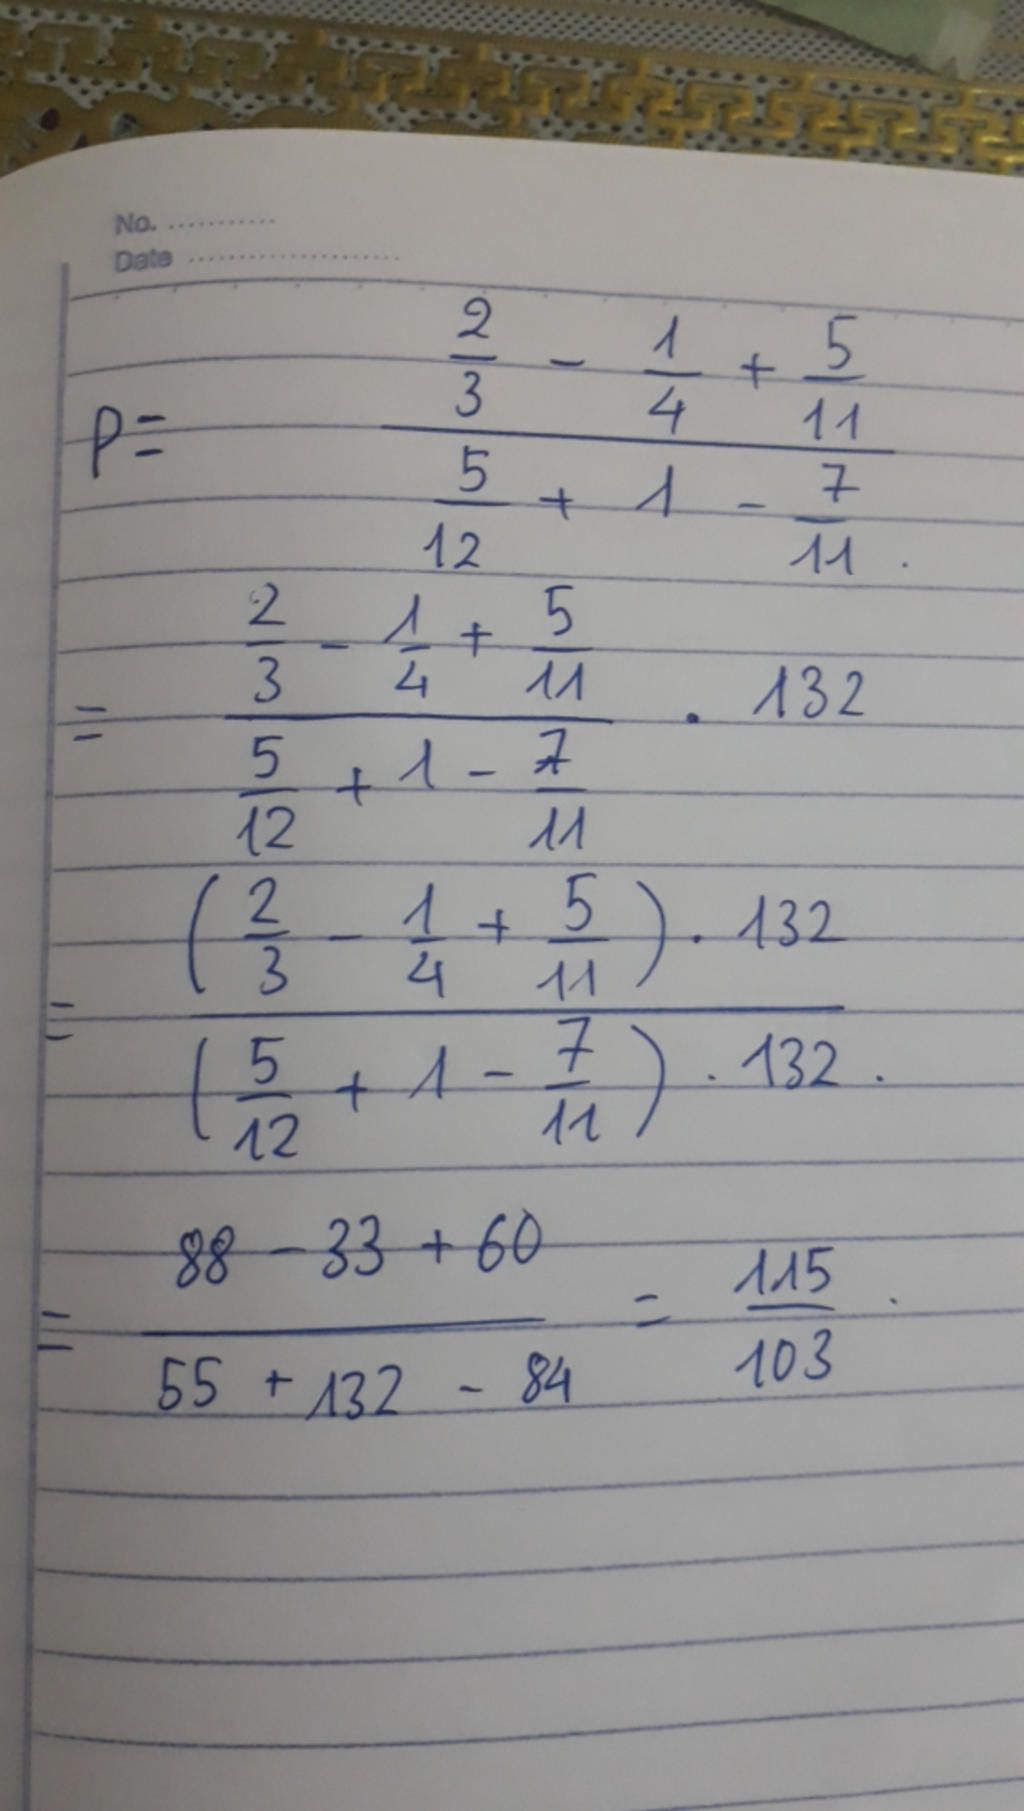 No. ...........
Date ......................
P = (2/3 - 1/4 + 5/11) / (5/12 + 1 - 7/11) .
= (2/3 - 1/4 + 5/11) / (5/12 + 1 - 7/11) . 132
= ((2/3 - 1/4 + 5/11) . 132) / ((5/12 + 1 - 7/11) . 132) .
= (88 - 33 + 60) / (55 + 132 - 84) = 115/103 .